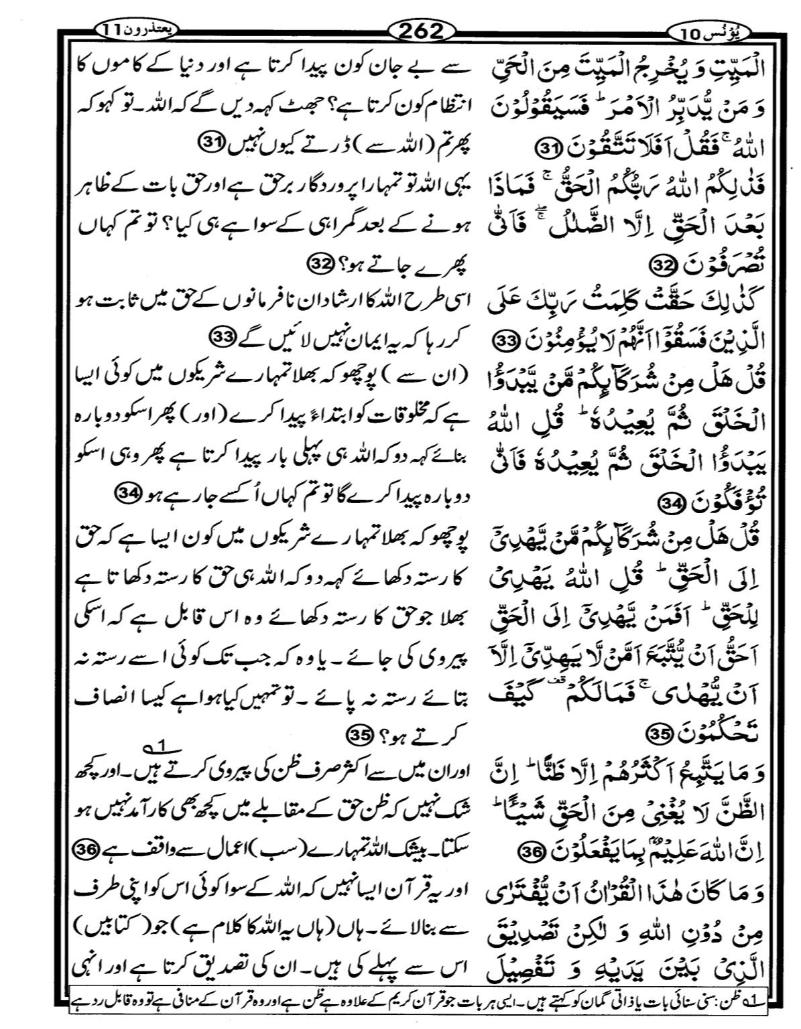 یعتذرون 11
262
یُوْنُس 10
الْمَیِّتِ وَ یُخْرِجُ الْمَیِّتَ مِنَ الْحَیِّ
وَ مَنْ یُّدَبِّرُ الْاَمْرَ ؕ فَسَیَقُوْلُوْنَ
اللّٰهُ ۚ فَقُلْ اَفَلَا تَتَّقُوْنَ 31
فَذٰلِكُمُ اللّٰهُ رَبُّكُمُ الْحَقُّ ۚ فَمَاذَا
بَعْدَ الْحَقِّ اِلَّا الضَّلٰلُ ۖۚ فَاَنّٰی
تُصْرَفُوْنَ 32
كَذٰلِكَ حَقَّتْ كَلِمَتُ رَبِّكَ عَلَی
الَّذِیْنَ فَسَقُوْۤا اَنَّهُمْ لَا یُؤْمِنُوْنَ 33
قُلْ هَلْ مِنْ شُرَكَآىِٕكُمْ مَّنْ یَّبْدَؤُا
الْخَلْقَ ثُمَّ یُعِیْدُهٗ ؕ قُلِ اللّٰهُ
یَبْدَؤُا الْخَلْقَ ثُمَّ یُعِیْدُهٗ فَاَنّٰی
تُؤْفَكُوْنَ 34
قُلْ هَلْ مِنْ شُرَكَآىِٕكُمْ مَّنْ یَّهْدِیْۤ
اِلَی الْحَقِّ ؕ قُلِ اللّٰهُ یَهْدِیْ
لِلْحَقِّ ؕ اَفَمَنْ یَّهْدِیْۤ اِلَی الْحَقِّ
اَحَقُّ اَنْ یُّتَّبَعَ اَمَّنْ لَّا یَهِدِّیْۤ اِلَّاۤ
اَنْ یُّهْدٰی ۚ فَمَا لَكُمْ ۫ كَیْفَ
تَحْكُمُوْنَ 35
وَ مَا یَتَّبِعُ اَكْثَرُهُمْ اِلَّا ظَنًّا ؕ اِنَّ
الظَّنَّ لَا یُغْنِیْ مِنَ الْحَقِّ شَیْـًٔا ؕ
اِنَّ اللّٰهَ عَلِیْمٌۢ بِمَا یَفْعَلُوْنَ 36
وَ مَا كَانَ هٰذَا الْقُرْاٰنُ اَنْ یُّفْتَرٰی
مِنْ دُوْنِ اللّٰهِ وَ لٰكِنْ تَصْدِیْقَ
الَّذِیْ بَیْنَ یَدَیْهِ وَ تَفْصِیْلَ
سے بے جان کون پیدا کرتا ہے اور دنیا کے کاموں کا
انتظام کون کرتا ہے؟ جھٹ کہہ دیں گے کہ اللہ۔ تو کہو کہ
پھر تم (اللہ سے) ڈرتے کیوں نہیں 31
یہی اللہ تو تمہارا پروردگار برحق ہے اور حق بات کے ظاہر
ہونے کے بعد گمراہی کے سوا ہے ہی کیا؟ تو تم کہاں
پھرے جاتے ہو؟ 32
اسی طرح اللہ کا ارشاد ان نافرمانوں کے حق میں ثابت ہو
کر رہا کہ یہ ایمان نہیں لائیں گے 33
(ان سے) پوچھو کہ بھلا تمہارے شریکوں میں کوئی ایسا
ہے کہ مخلوقات کو ابتداءً پیدا کرے (اور) پھر اسکو دوبارہ
بنائے کہہ دو کہ اللہ ہی پہلی بار پیدا کرتا ہے پھر وہی اسکو
دوبارہ پیدا کرے گا تو تم کہاں اُکسے جا رہے ہو 34
پوچھو کہ بھلا تمہارے شریکوں میں کون ایسا ہے کہ حق
کا رستہ دکھائے کہہ دو کہ اللہ ہی حق کا رستہ دکھاتا ہے
بھلا جو حق کا رستہ دکھائے وہ اس قابل ہے کہ اسکی
پیروی کی جائے ۔ یا وہ کہ جب تک کوئی اسے رستہ نہ
بتائے رستہ نہ پائے ۔ تو تمہیں کیا ہوا ہے کیسا انصاف
کرتے ہو؟ 35
اور ان میں سے اکثر صرف ظن کی پیروی کرتے ہیں۔ اور کچھ
شک نہیں کہ ظن حق کے مقابلے میں کچھ بھی کارآمد نہیں ہو
سکتا۔ بیشک اللہ تمہارے (سب) اعمال سے واقف ہے 36
اور یہ قرآن ایسا نہیں کہ اللہ کے سوا کوئی اس کو اپنی طرف
سے بنا لائے۔ ہاں (ہاں یہ اللہ کا کلام ہے) جو (کتابیں)
اس سے پہلے کی ہیں۔ ان کی تصدیق کرتا ہے اور انہی
1؎ ظن: سنی سنائی بات یا ذاتی گمان کو کہتے ہیں ۔ ایسی ہر بات جو قرآن کریم کے علاوہ ہے ظن ہے اور وہ قرآن کے منافی ہے تو وہ قابل رد ہے